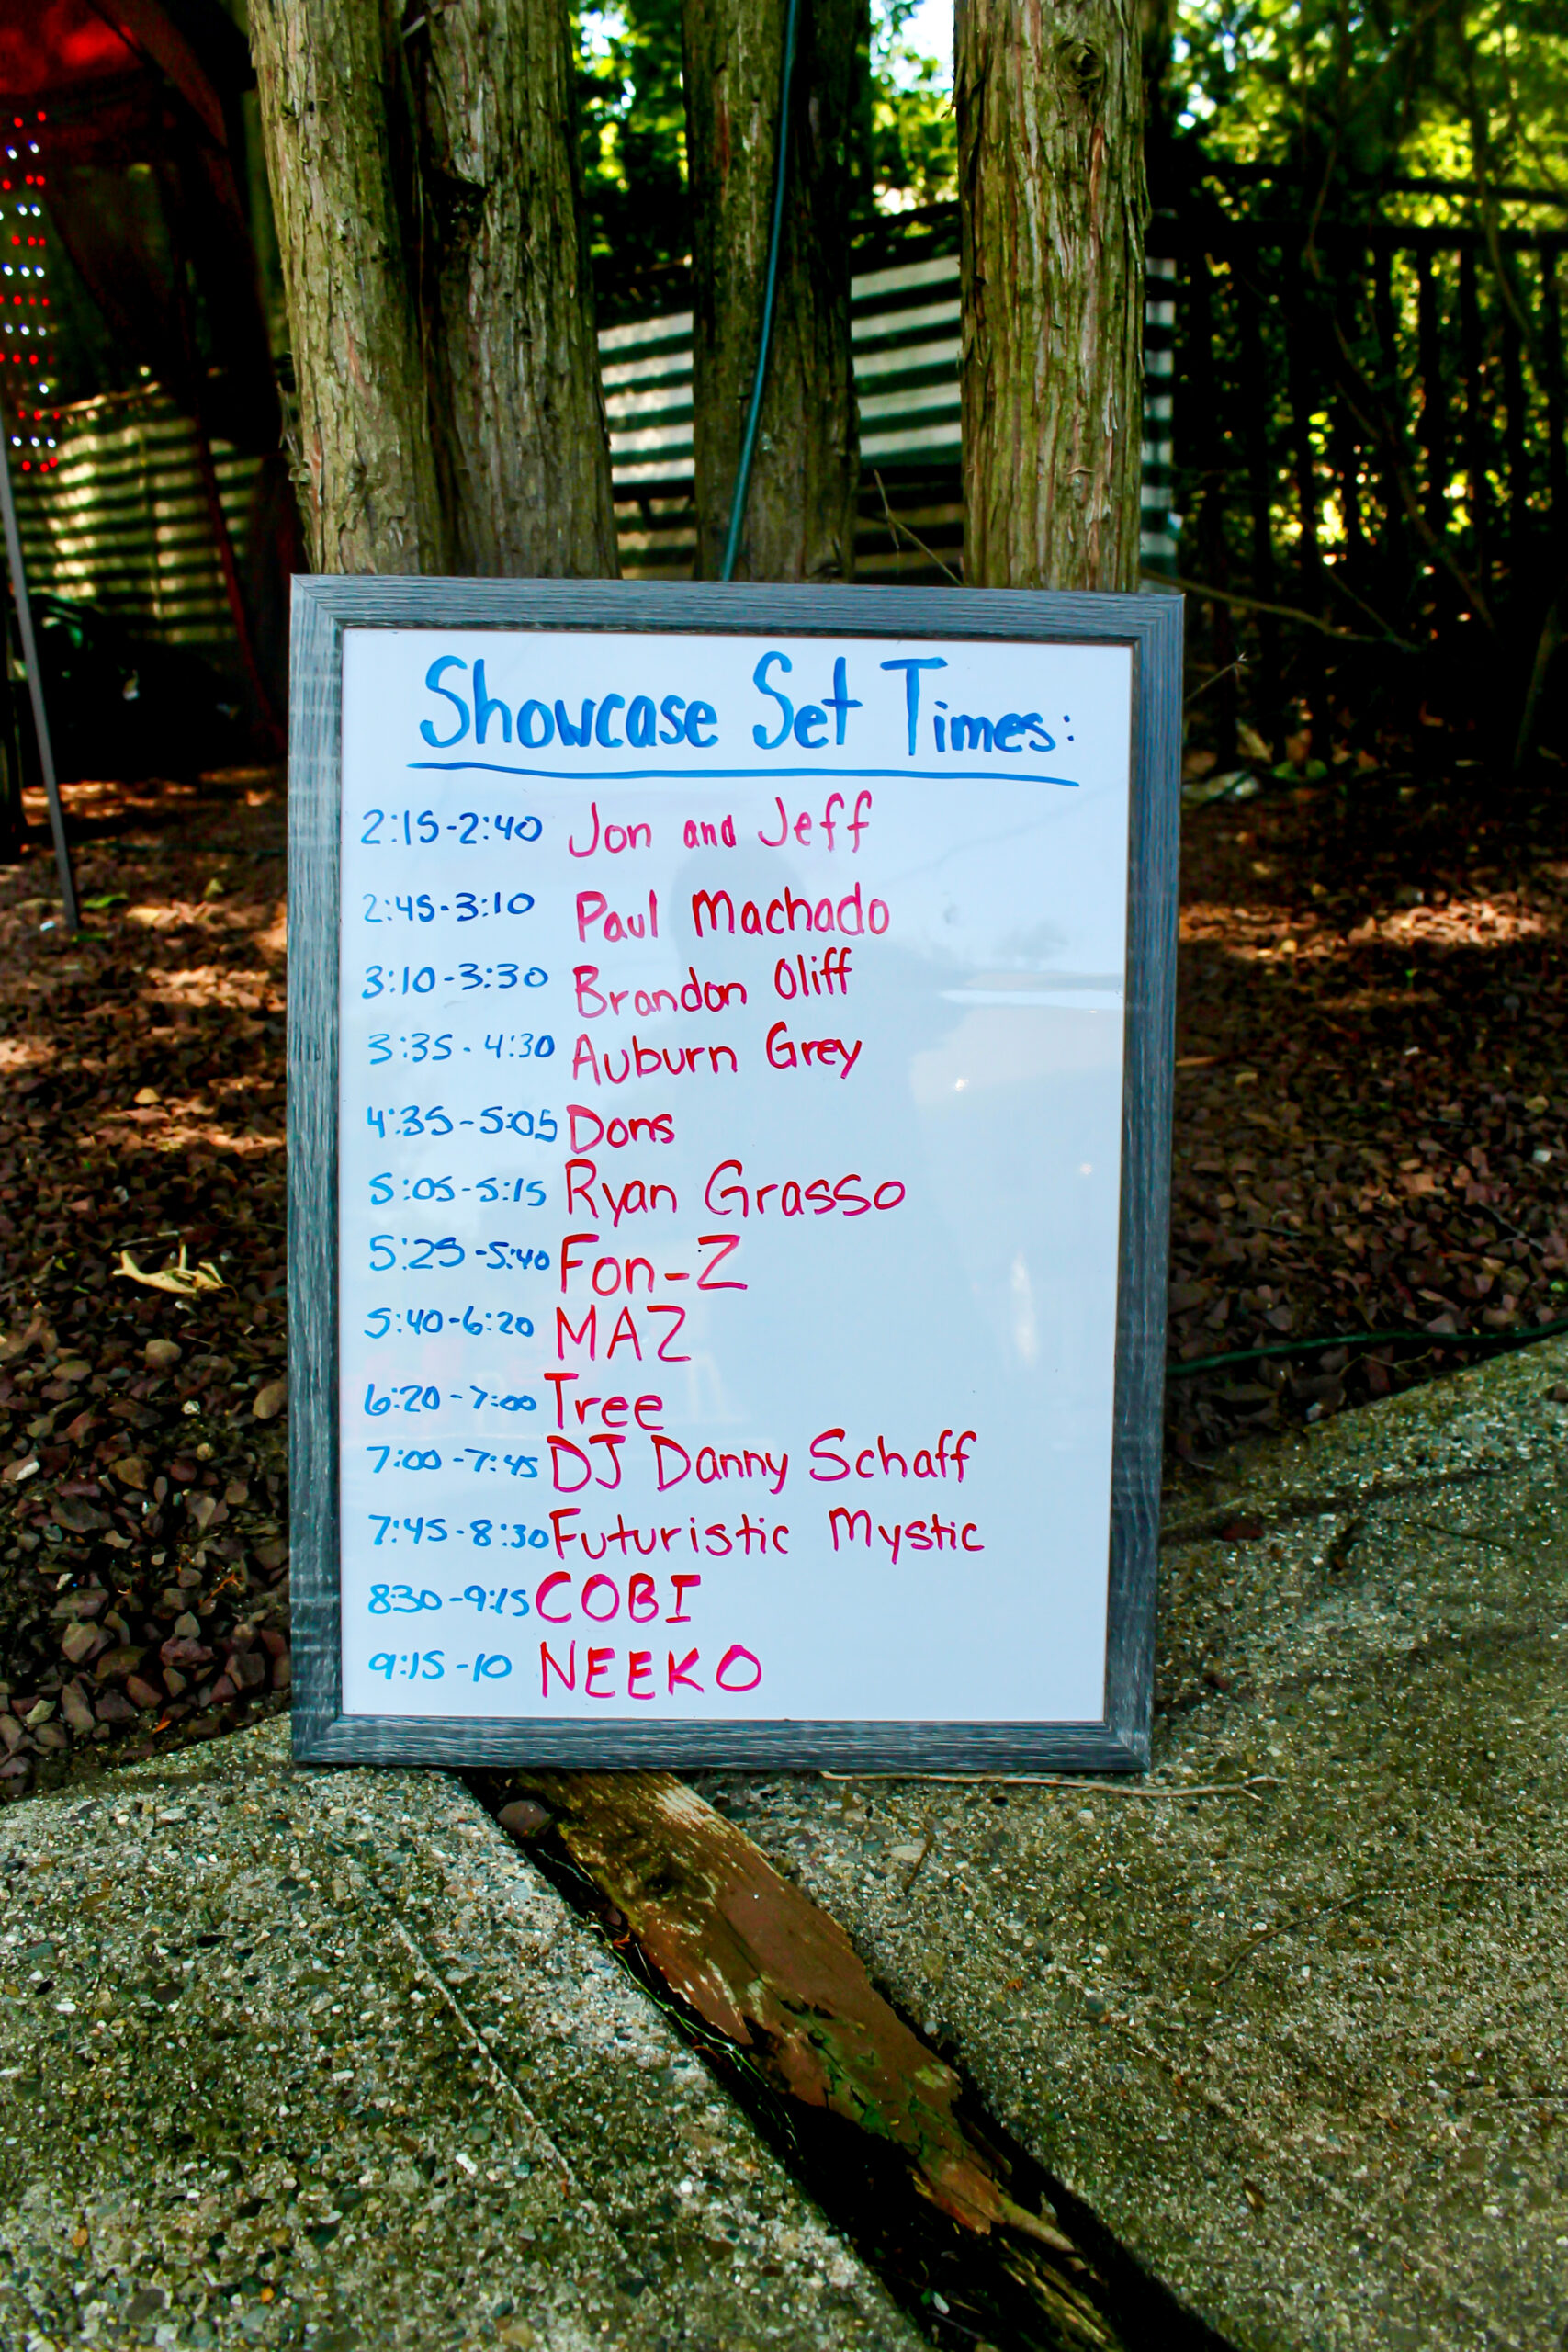 Showcase Set Times:
2:15-2:40 Jon and Jeff
2:45-3:10 Paul Machado
3:10-3:30 Brandon Oliff
3:35-4:30 Auburn Grey
4:35-5:05 Dons
5:05-5:15 Ryan Grasso
5:25-5:40 Fon-Z
5:40-6:20 MAZ
6:20-7:00 Tree
7:00-7:45 DJ Danny Schaff
7:45-8:30 Futuristic Mystic
830-9:15 COBI
9:15-10 NEEKO